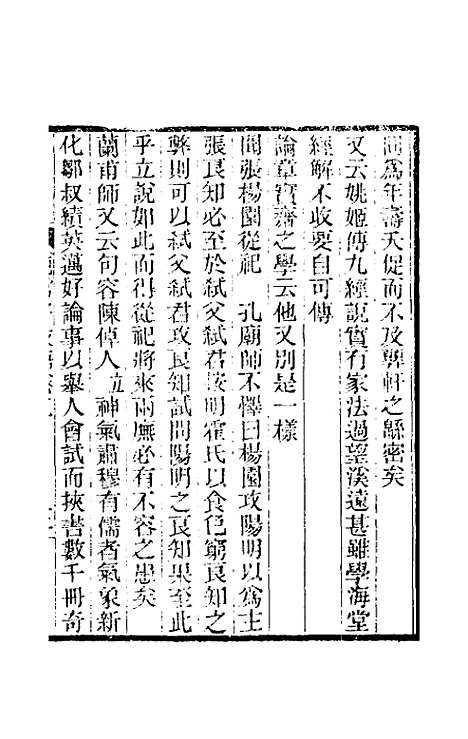 爲年壽夭促而不及鄦軒之緜密矣
又云姚姬傳九經說實有家法過望溪遠甚雖學海堂
經解不收要自可傳
論章實齋之學云他又別是一樣
聞張楊園從祀　孔廟師不懌曰楊園攻陽明以爲主
張良知必至於弑父弑君按明霍氏以食色窮良知之
弊則可以弑父弑君攻良知試問陽明之良知果至此
乎立說如此而得從祀將來兩廡必有不容之患矣
蘭甫師又云句容陳倬人立神氣肅穆有儒者氣象新
化鄒叔績英邁好論事以舉人會試而挾書數千冊奇